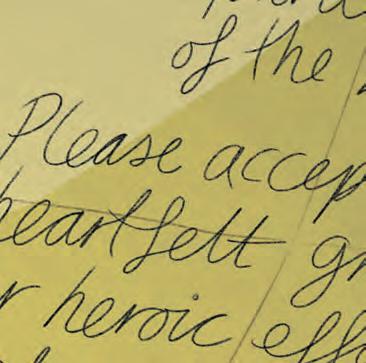 of the
Please accep
heartfelt gr
heroic eff